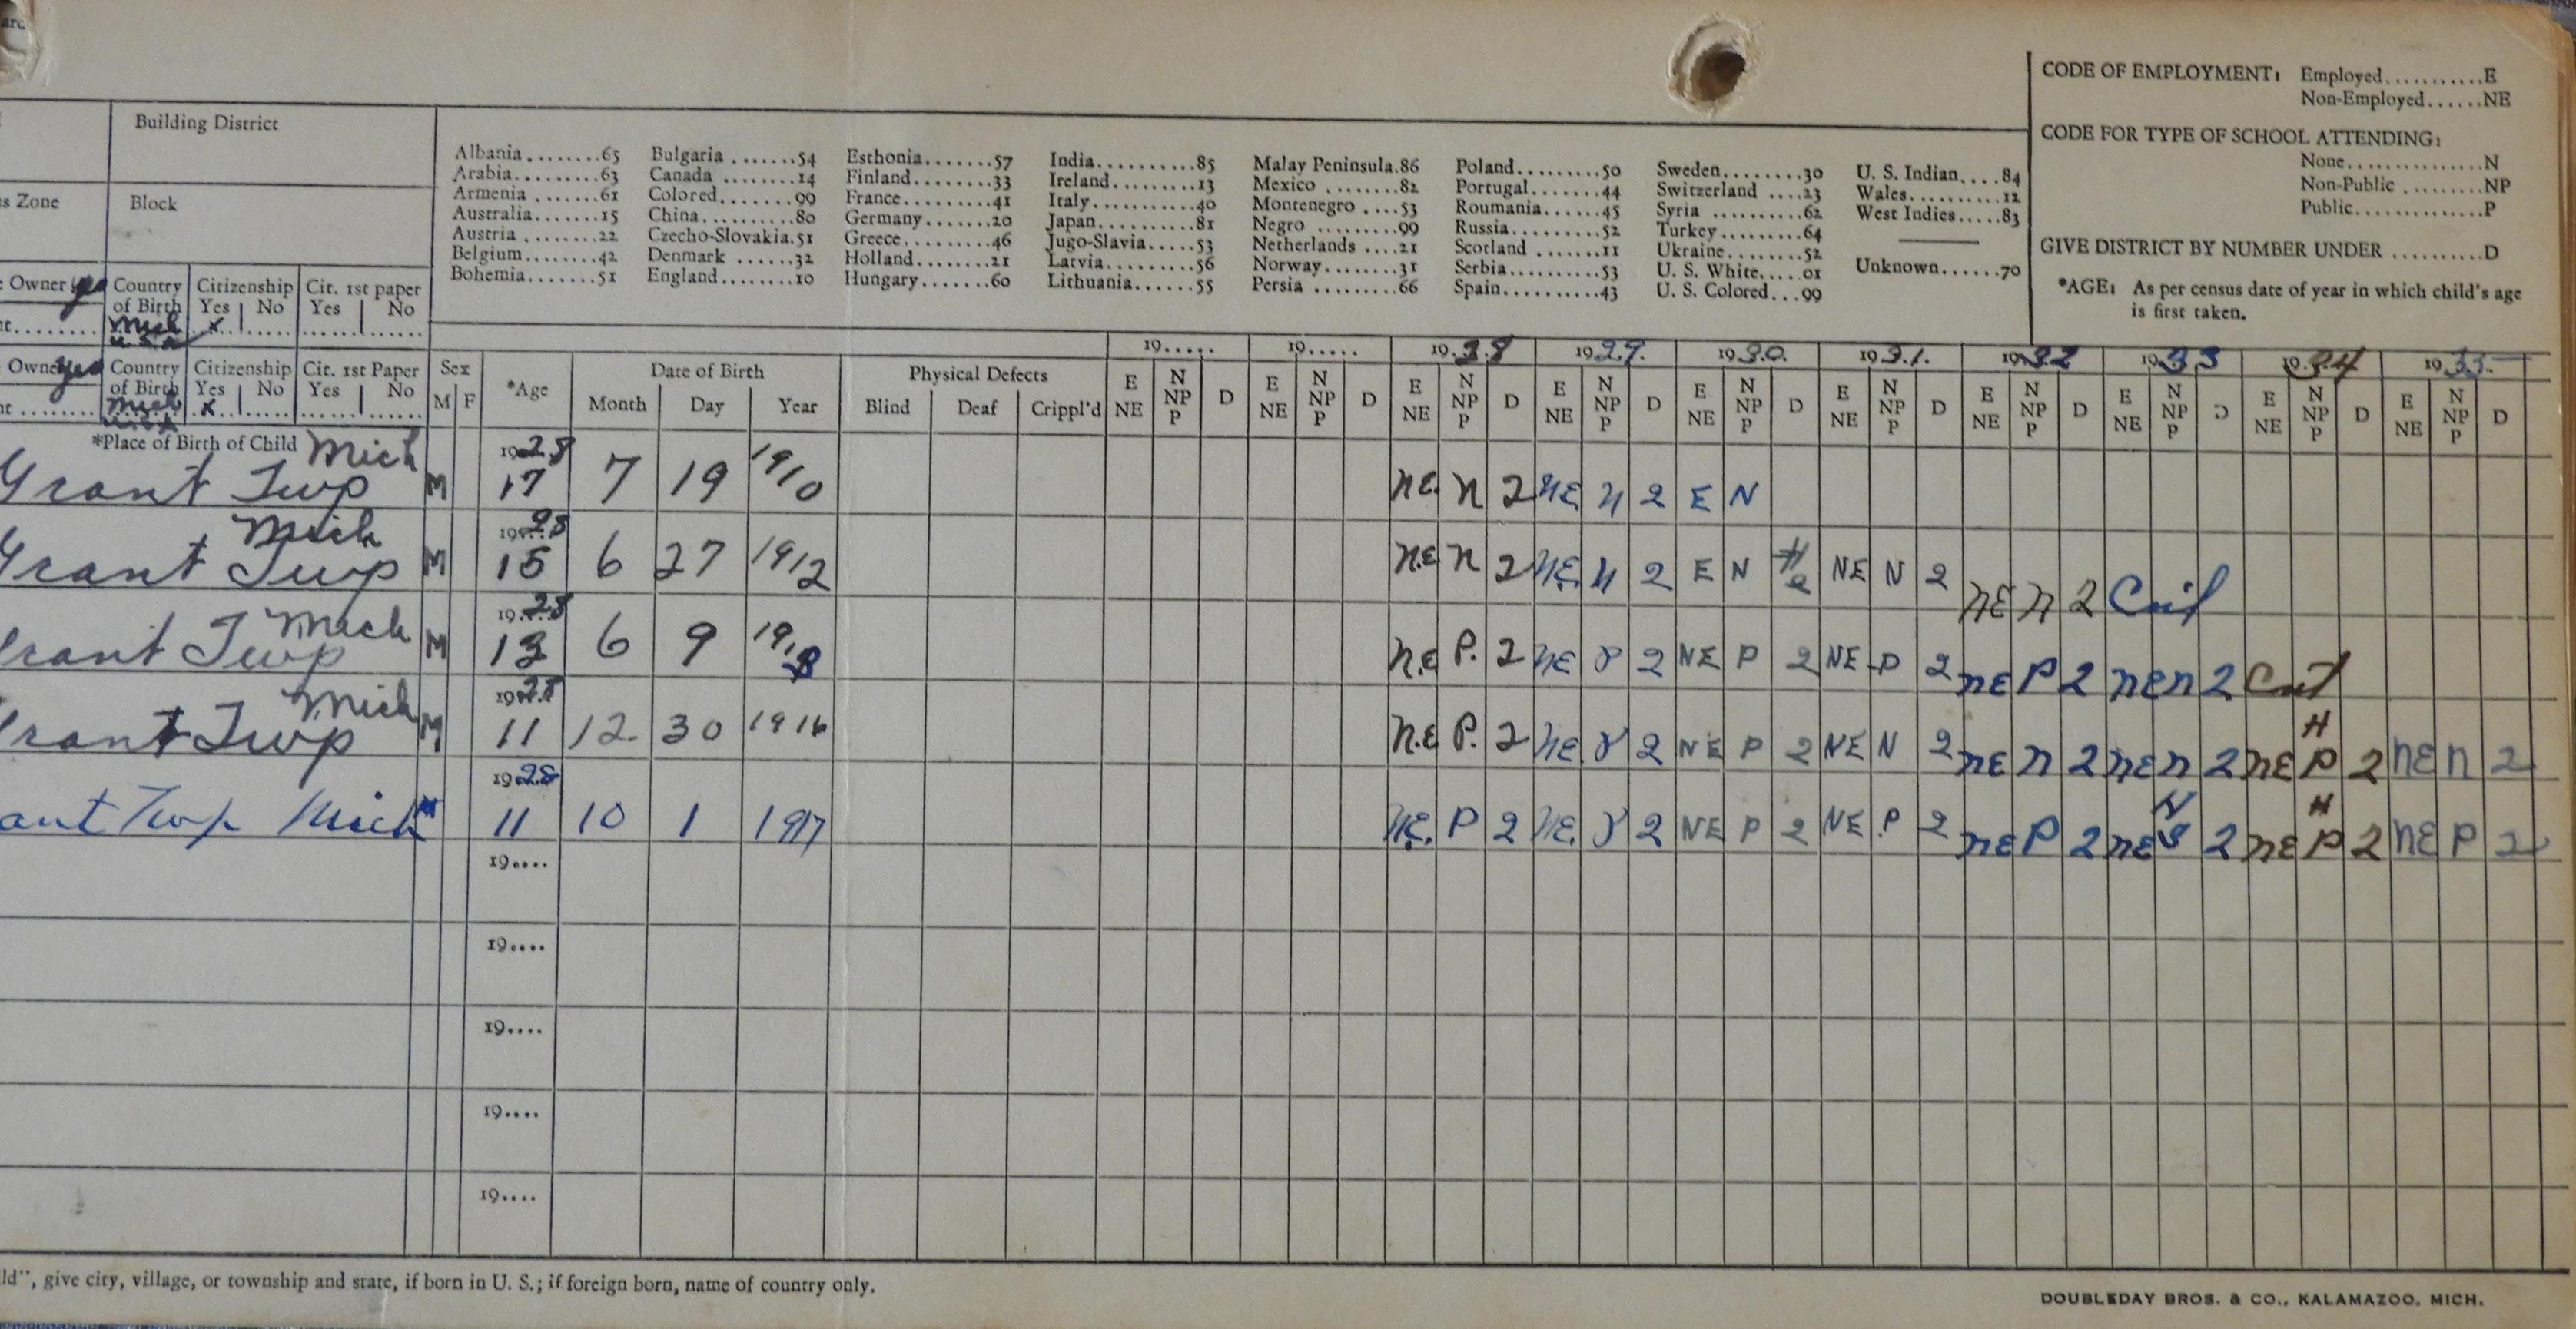 CODE OF EMPLOYMENT: Employed...........E
Non-Employed......NE
CODE FOR TYPE OF SCHOOL ATTENDING:
None................N
Non-Public .........NP
Public..............P
GIVE DISTRICT BY NUMBER UNDER ..........D
*AGE: As per census date of year in which child's age
is first taken.
Building District
s Zone Block
Albania........65 Bulgaria .......54 Esthonia.......57 India..........85 Malay Peninsula.86 Poland.........50 Sweden........30 U. S. Indian....84
Arabia.........63 Canada ........14 Finland........33 Ireland.........13 Mexico ........82 Portugal.......44 Switzerland ....23 Wales..........12
Armenia .......61 Colored........99 France.........41 Italy..........40 Montenegro ....53 Roumania......45 Syria .........62 West Indies.....83
Australia.......15 China..........80 Germany.......20 Japan..........81 Negro .........99 Russia.........52 Turkey.........64
Austria ........22 Czecho-Slovakia.51 Greece.........46 Jugo-Slavia.....53 Netherlands ....21 Scotland .......11 Ukraine........52
Belgium........42 Denmark ......32 Holland........21 Latvia.........56 Norway........31 Serbia.........53 U. S. White.....01 Unknown......70
Bohemia.......51 England........10 Hungary.......60 Lithuania......55 Persia .........66 Spain..........43 U. S. Colored...99
Owner yes Country of Birth Mich U.S.A. Citizenship Yes x No Cit. 1st paper Yes No
Owner yes Country of Birth Mich U.S.A. Citizenship Yes x No Cit. 1st Paper Yes No
19..... 19..... 1928 1929. 1930. 1931. 1932 1933 1934 1935
Sex M F *Age Date of Birth Month Day Year Physical Defects Blind Deaf Crippl'd
E NE N NP P D E NE N NP P D E NE N NP P D E NE N NP P D E NE N NP P D E NE N NP P D E NE N NP P D E NE N NP P D E NE N NP P D E NE N NP P D
*Place of Birth of Child Mich 1928
Grant Twp M 17 7 19 1910 NE. N 2 NE N 2 E N
Mich 1928
Grant Twp M 15 6 27 1912 N.E N 2 NE. N 2 E N # 2 NE N 2 NE N 2
Mich 1928
rant Twp M 13 6 9 N.E P. 2 NE P 2 NE P 2 NE P 2 NE P 2 NE N 2
Mich 1928
rant Twp M 11 12 30 1916 N.E P. 2 NE P 2 NE P 2 NE N 2 NE N 2 NE N 2 NE H P 2 NE N 2
1928
ant Twp Mich M 11 10 1 1917 NE. P 2 NE. P 2 NE P 2 NE P 2 NE P 2 NE 2 NE H P 2 NE P 2
19....
19....
19....
19....
19....
ld", give city, village, or township and state, if born in U. S.; if foreign born, name of country only.
DOUBLEDAY BROS. & CO., KALAMAZOO, MICH.